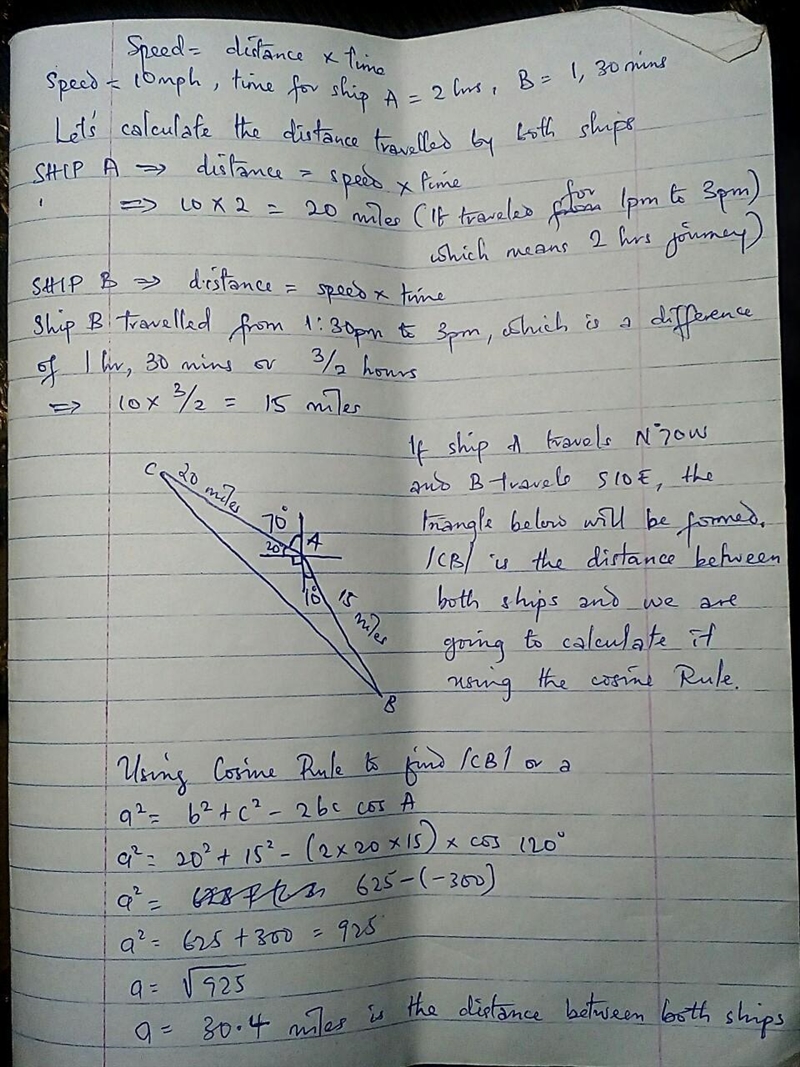 Speed = distance × time
Speed = 10mph, time for ship A = 2 hrs, B = 1, 30 mins
Let's calculate the distance travelled by both ships
SHIP A ⇒ distance = speed × time
⇒ 10 × 2 = 20 miles (It traveled for 1pm to 3pm)
which means 2 hrs journey)
SHIP B ⇒ distance = speed × time
Ship B travelled from 1:30pm to 3pm, which is a difference
of 1 hr, 30 mins or 3/2 hours
⇒ 10 × 3/2 = 15 miles
If ship A travels N°70W
and B travels S10E, the
triangle below will be formed.
/CB/ is the distance between
both ships and we are
going to calculate it
using the cosine Rule.
C 20 miles
70°
20° A
10° 15 miles
B
Using Cosine Rule to find /CB/ or a
a² = b² + c² - 2bc cos A
a² = 20² + 15² - (2×20×15) × cos 120°
a² = 625 - (-300)
a² = 625 + 300 = 925
a = √925
a = 30.4 miles is the distance between both ships